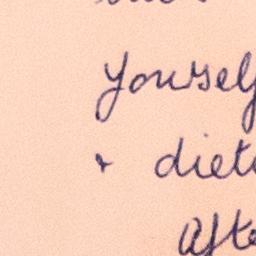 Yoursel
+ diet
Afte